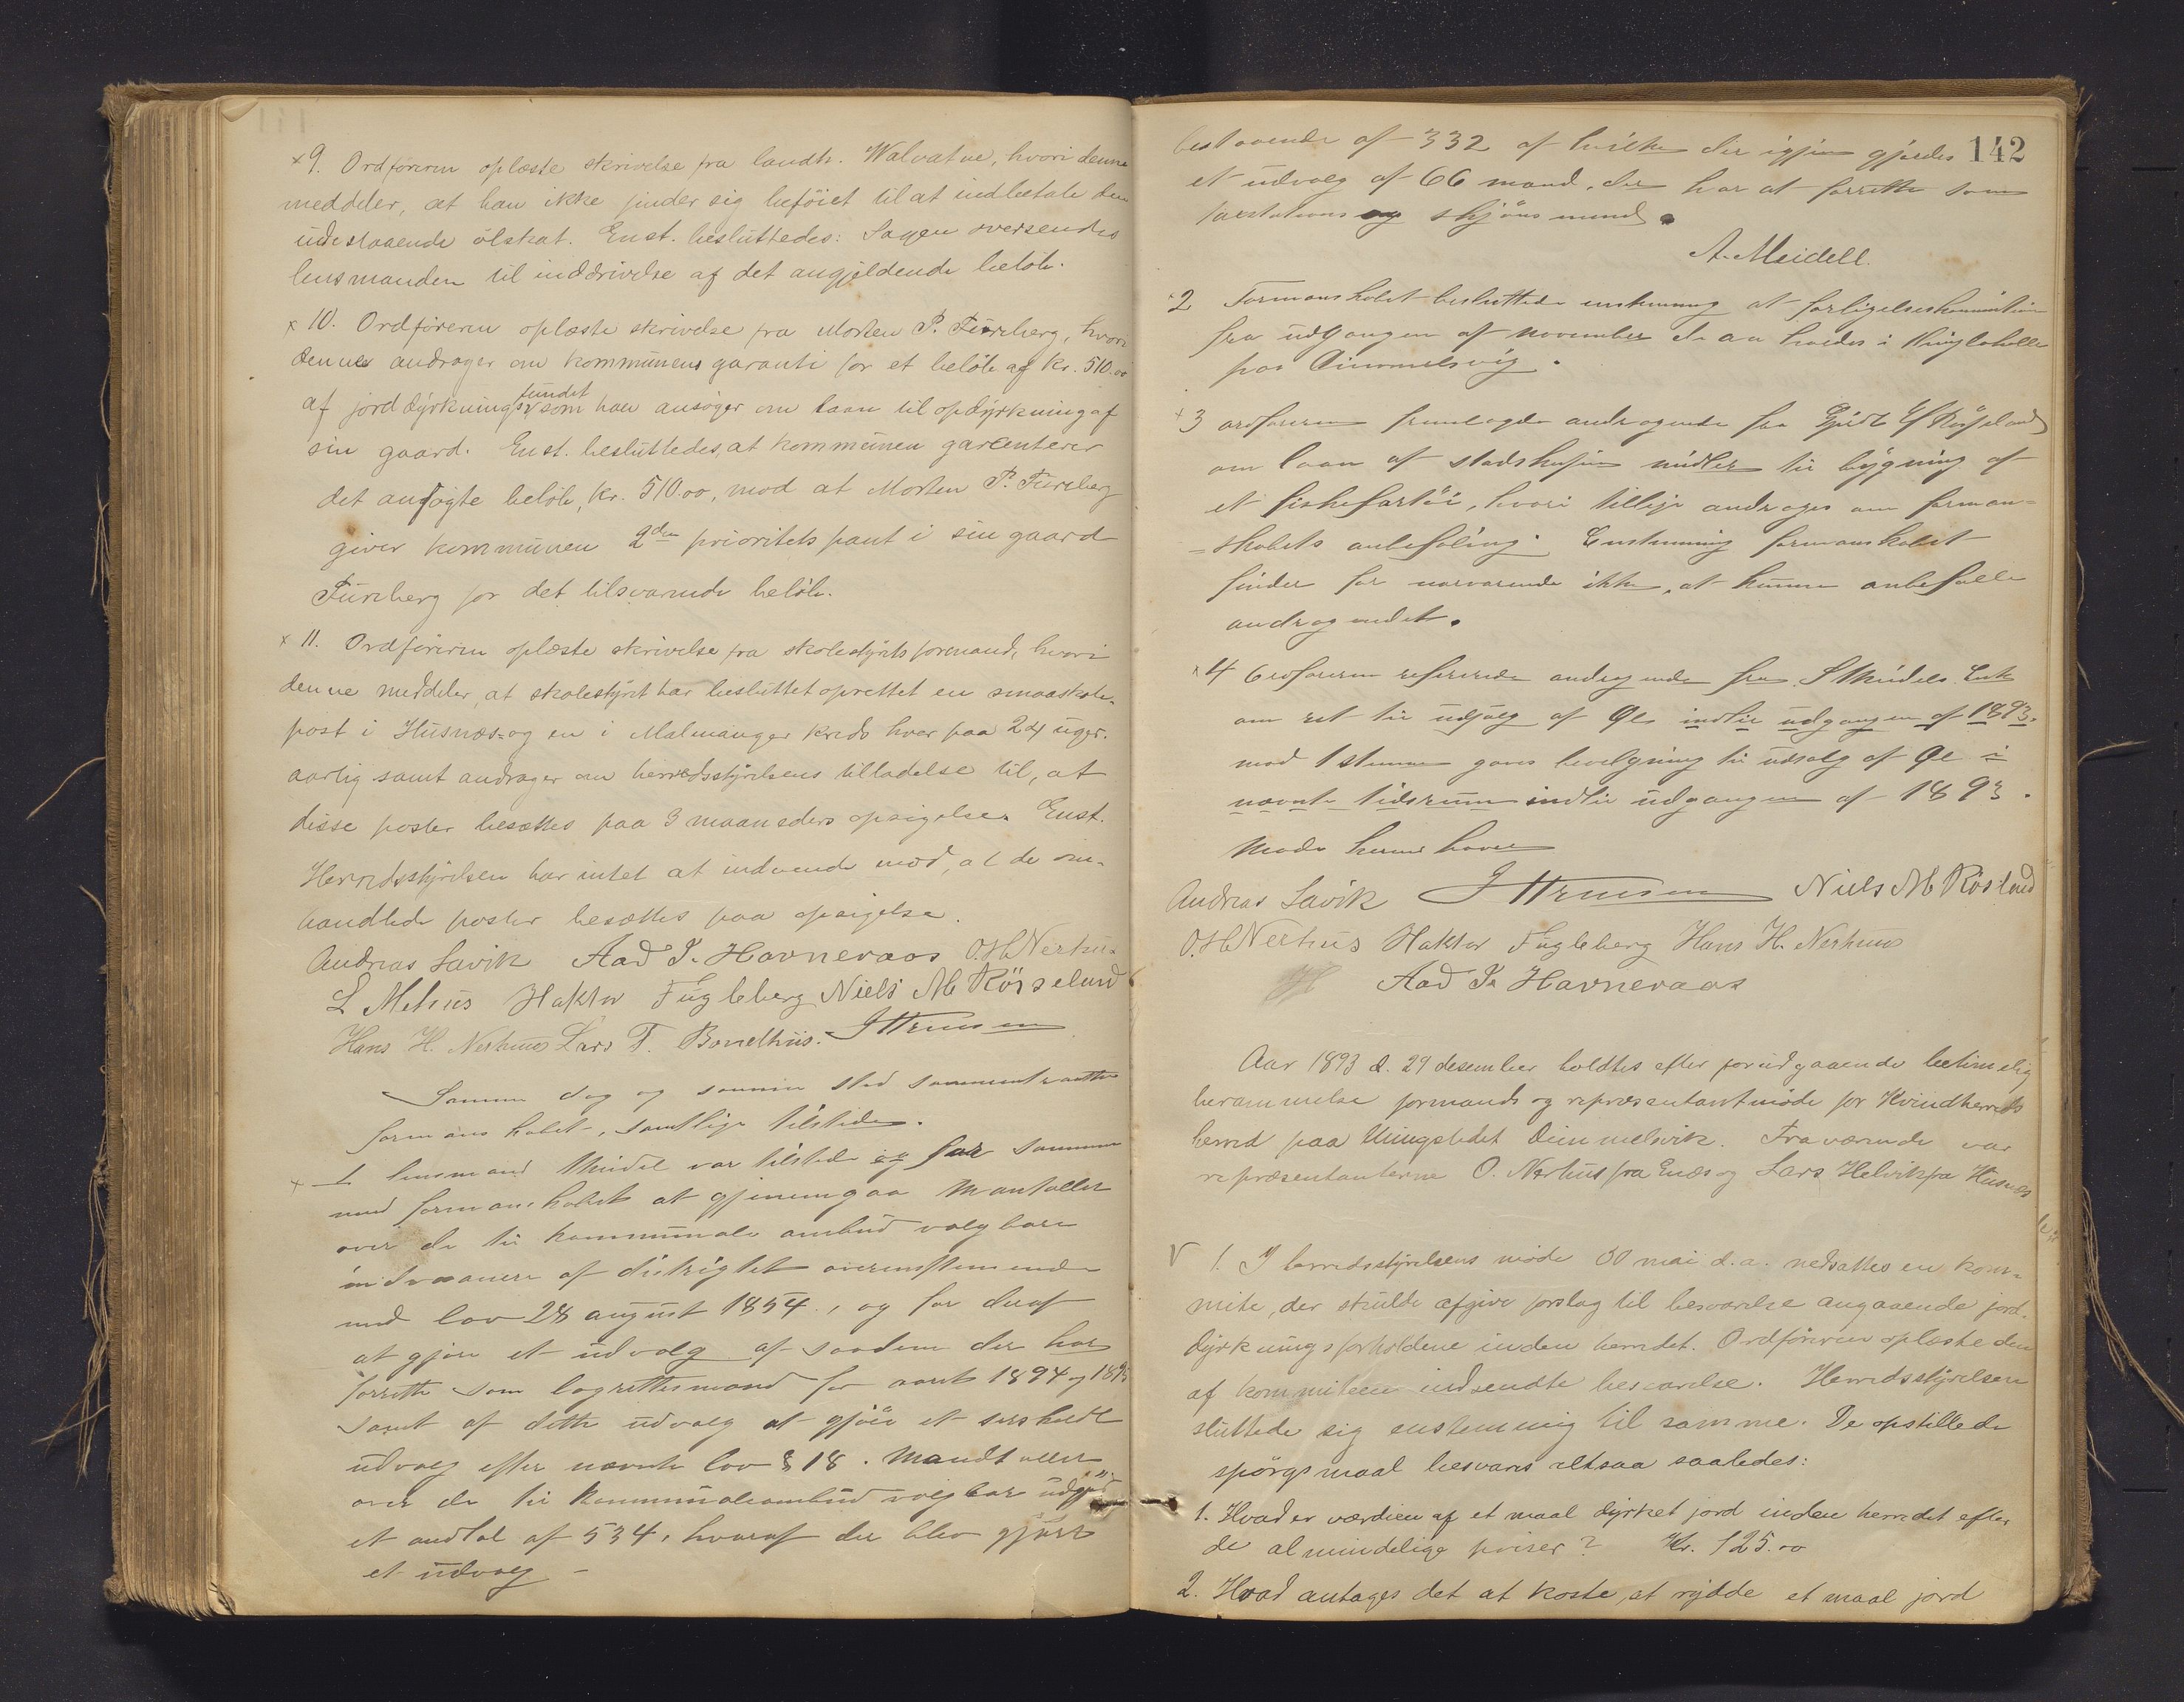 x 9. Ordföreren oplæste skrivelse fra landh. Walvatne, hvori denne
meddeler, at han ikke finder sig beföiet til at indbetale den
udestaaende ölskat. Enst. besluttedes: Sagen oversendes
lensmanden til inddrivelse af det angjeldende belöb.
x 10. Ordföreren oplæste skrivelse fra Morten P. Fureberg, hvori
denne andrager om kommunens garanti for et belöb af Kr. 510.00
af jorddyrkningsfundet som han ansöger om laan til opdyrkning af
sin gaard. Enst. besluttedes, at kommunen garenterer
det ansögte belöb, Kr. 510.00, mod at Morten P. Fureberg
giver kommunen 2den prioritets pant i sin gaard
Fureberg for det tilsvarende belöb.
x 11. Ordföreren oplæste skrivelse fra skolestyrets formand, hvori
denne meddeler, at skolestyret har besluttet oprettet en smaaskole-
post i Husnæs- og en i Malmanger kreds hver paa 24 uger.
aarlig samt andrager om herredsstyrelsens tilladelse til, at
disse poster besættes paa 3 maaneders opsigelse. Enst.
Herredsstyrelsen har intet at indvende mod, at de om-
handlede poster besættes paa opsigelse.
Andreas Savik Aad J. Havneraas O.H Nerhus
L Mehus Haktor Fugleberg Niels M Rösselund
Hans H. Nerhus Lars T. Bondhus.
Samme dag og samme sted sammentraatte
formanskabet, samtlige tilstede.
x 1 lensmand Meidel var tilstede og for sammen
med formanskabet at gjennemgaa Mantallet
over de til kommunale ombud valgbare
indvaanere af distrigtet overensstemmende
med lov 28 august 1854, og for deraf
at gjöre et udvalg af saadanne der har
forrette som lagrettesmænd for aaret 1894 og 1895
samt af dette udvalg at gjöre et særskildt
udvalg efter nævnte lov § 18. Mandtallet
over de til Kommunaleombud valgbare udgjör
et andtal af 534, hvoraf der blev gjört
et udvalg –
142
bestaaende af 332 af hvilke der igjen gjordes
et udvalg af 66 mand, der har at forrette som
taxtations og skjöns mænd.
A. Meidell.
x 2 Formanskabet besluttede enstemmig at forligelseskommission
fra udgangen af november d. aa holdes i thinglokalle
paa Dimmelsvig.
x 3 ordföreren fremlagde andragende fra Gjert Röselund
om laan af stadskassens midler til bygning af
et fiskefartöi, hvori tillige andrages om forman-
=skabets anbefaling. Enstemmig formanskabet
finder for nærværende ikke, at kunne anbefalle
andragendet.
x 4 Ordföreren refererede andragende fra Meidels Enke
om ret til udsalg af Øl indtil udgangen af 1893.
mod 1 stemme gaves bevilgning til udsalg af Øl i
nævnte tidsrum indtil udgangen af 1893.
Möde hermed hævet
Andreas Savik Niels M Röslund
O.H Nerhus Haktor Fugleberg Hans H. Nerhus
Aad J. Havneraas
Aar 1893 d. 29 desember holdtes efter forudgaaende betimelig
berammelse formands og repræsentantmöde for Kvindherreds
herred paa thingstedet Dimmelsvik. Fraværende var
repræsentanterne O. Nerhus fra Enæs og Lars Helvik fra Husnes
V 1. I herredsstyrelsens möde 30 mai d.a. nedsattes en kom-
mite, der skulde afgive forslag til besvarelse angaaende jord-
dyrkningsforholdene inden herredet. Ordföreren oplæste den
af kommiteen indsendte besvarelse. Herredsstyrelsen
sluttede sig enstemmig til samme. De opstillede
spörgsmaal besvares altsaa saaledes:
1. Hvad er værdien af et maal dyrket jord inden herredet efter
de almindelige priser? Kr. 125.00
2. Hvad antages det at koste, at rydde et maal jord